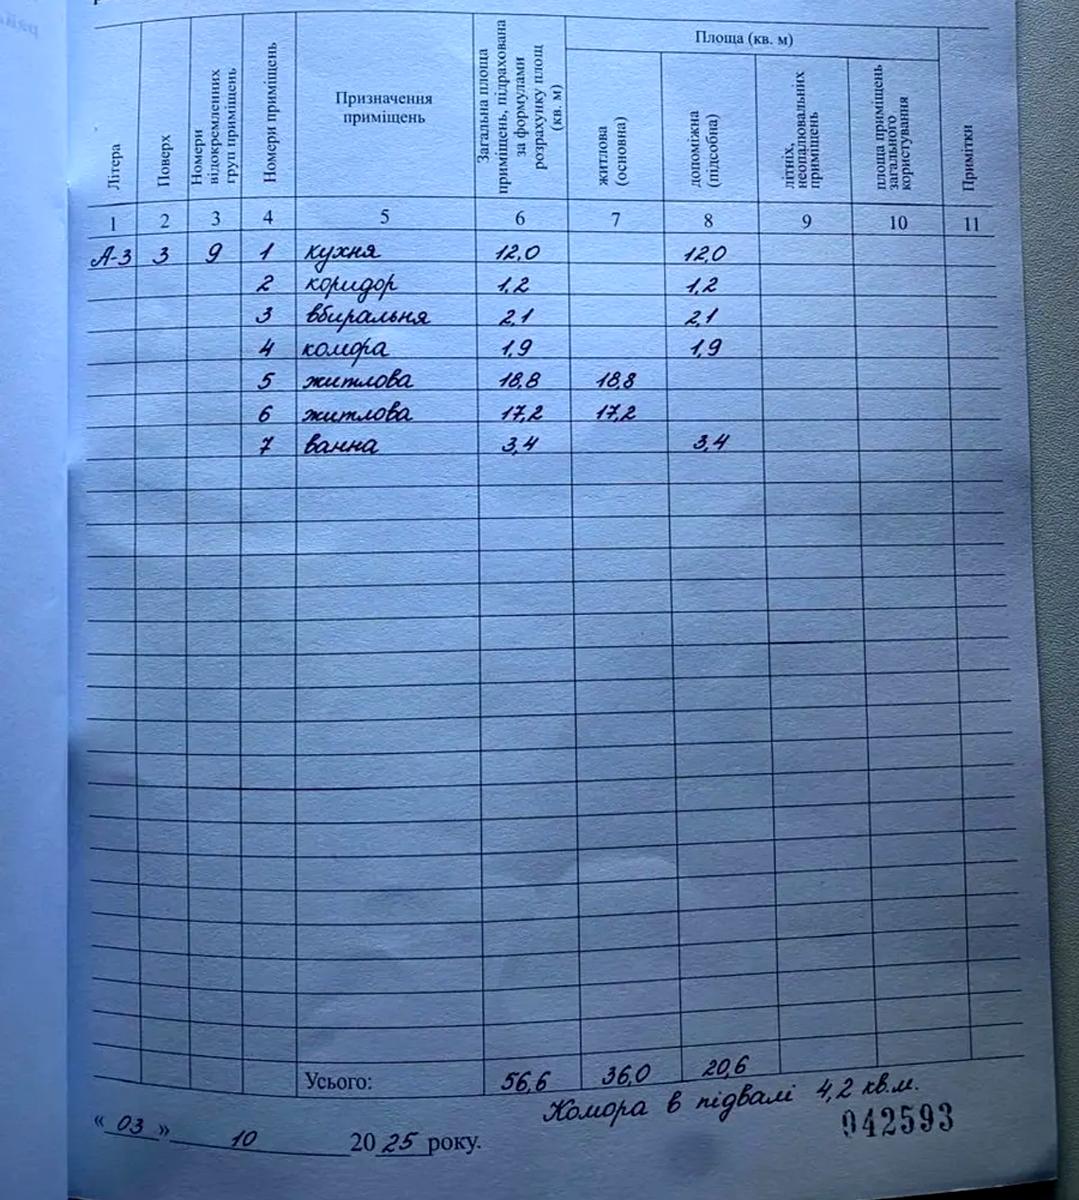 Літера
Поверх
Номери відокремленних груп приміщень
Номери приміщень
Призначення приміщень
Загальна площа приміщень, підрахована за формулами розрахунку площ (кв. м)
Площа (кв. м)
житлова (основна)
допоміжна (підсобна)
літніх, неопалювальних приміщень
площа приміщень загального користування
Примітки
1 2 3 4 5 6 7 8 9 10 11
А-3 3 9 1 кухня 12,0 12,0
2 коридор 1,2 1,2
3 вбиральня 2,1 2,1
4 комора 1,9 1,9
5 житлова 18,8 18,8
6 житлова 17,2 17,2
7 ванна 3,4 3,4
Усього: 56,6 36,0 20,6
Комора в підвалі 4,2 кв.м.
042593
« 03 » 10 2025 року.